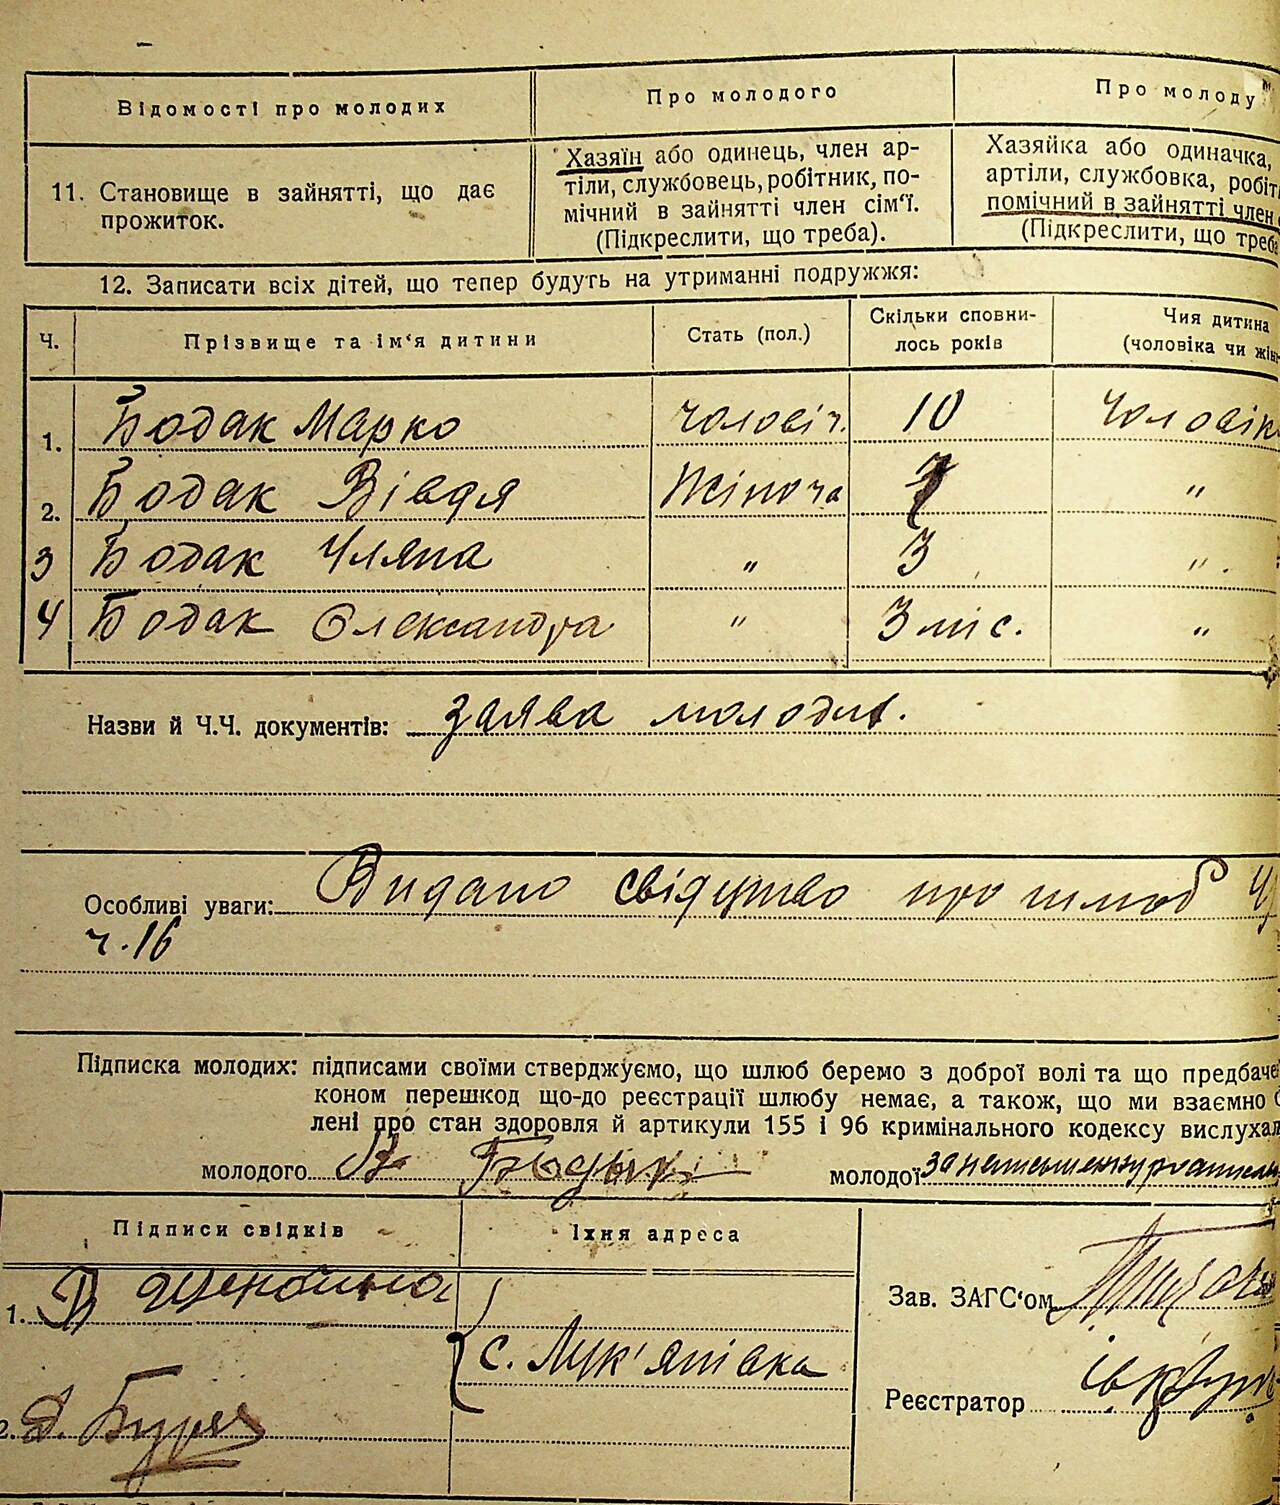 Відомості про молодих
Про молодого
Про молоду
11. Становище в зайнятті, що дає
прожиток.
Хазяїн або одинець, член ар-
тіли, службовець, робітник, по-
мічний в зайнятті член сім'ї.
(Підкреслити, що треба).
Хазяйка або одиначка,
артіли, службовка, робіт
помічний в зайнятті член
(Підкреслити, що треба
12. Записати всіх дітей, що тепер будуть на утриманні подружжя:
Ч.
Прізвище та ім'я дитини
Стать (пол.)
Скільки сповни-
лось років
Чия дитина
(чоловіка чи жін
1. Бодак Марко чоловіч. 10 Чоловік
2. Бодак Вівдя Жіноча 7 "
3 Бодак Уляна " 3 "
4 Бодак Олександра " 3 міс. "
Назви й Ч.Ч. документів: заява молодих.
Особливі уваги: Видано свідцтво про шлюб
ч. 16
Підписка молодих: підписами своїми стверджуємо, що шлюб беремо з доброї волі та що предбаче
коном перешкод що-до реєстрації шлюбу немає, а також, що ми взаємно
лені про стан здоровля й артикули 155 і 96 кримінального кодексу вислухал
молодого
молодої за неписьменну
Підписи свідків
Їхня адреса
1.
с. Лук'янівка
2. Д. Буряк
Зав. ЗАГС'ом
Реєстратор